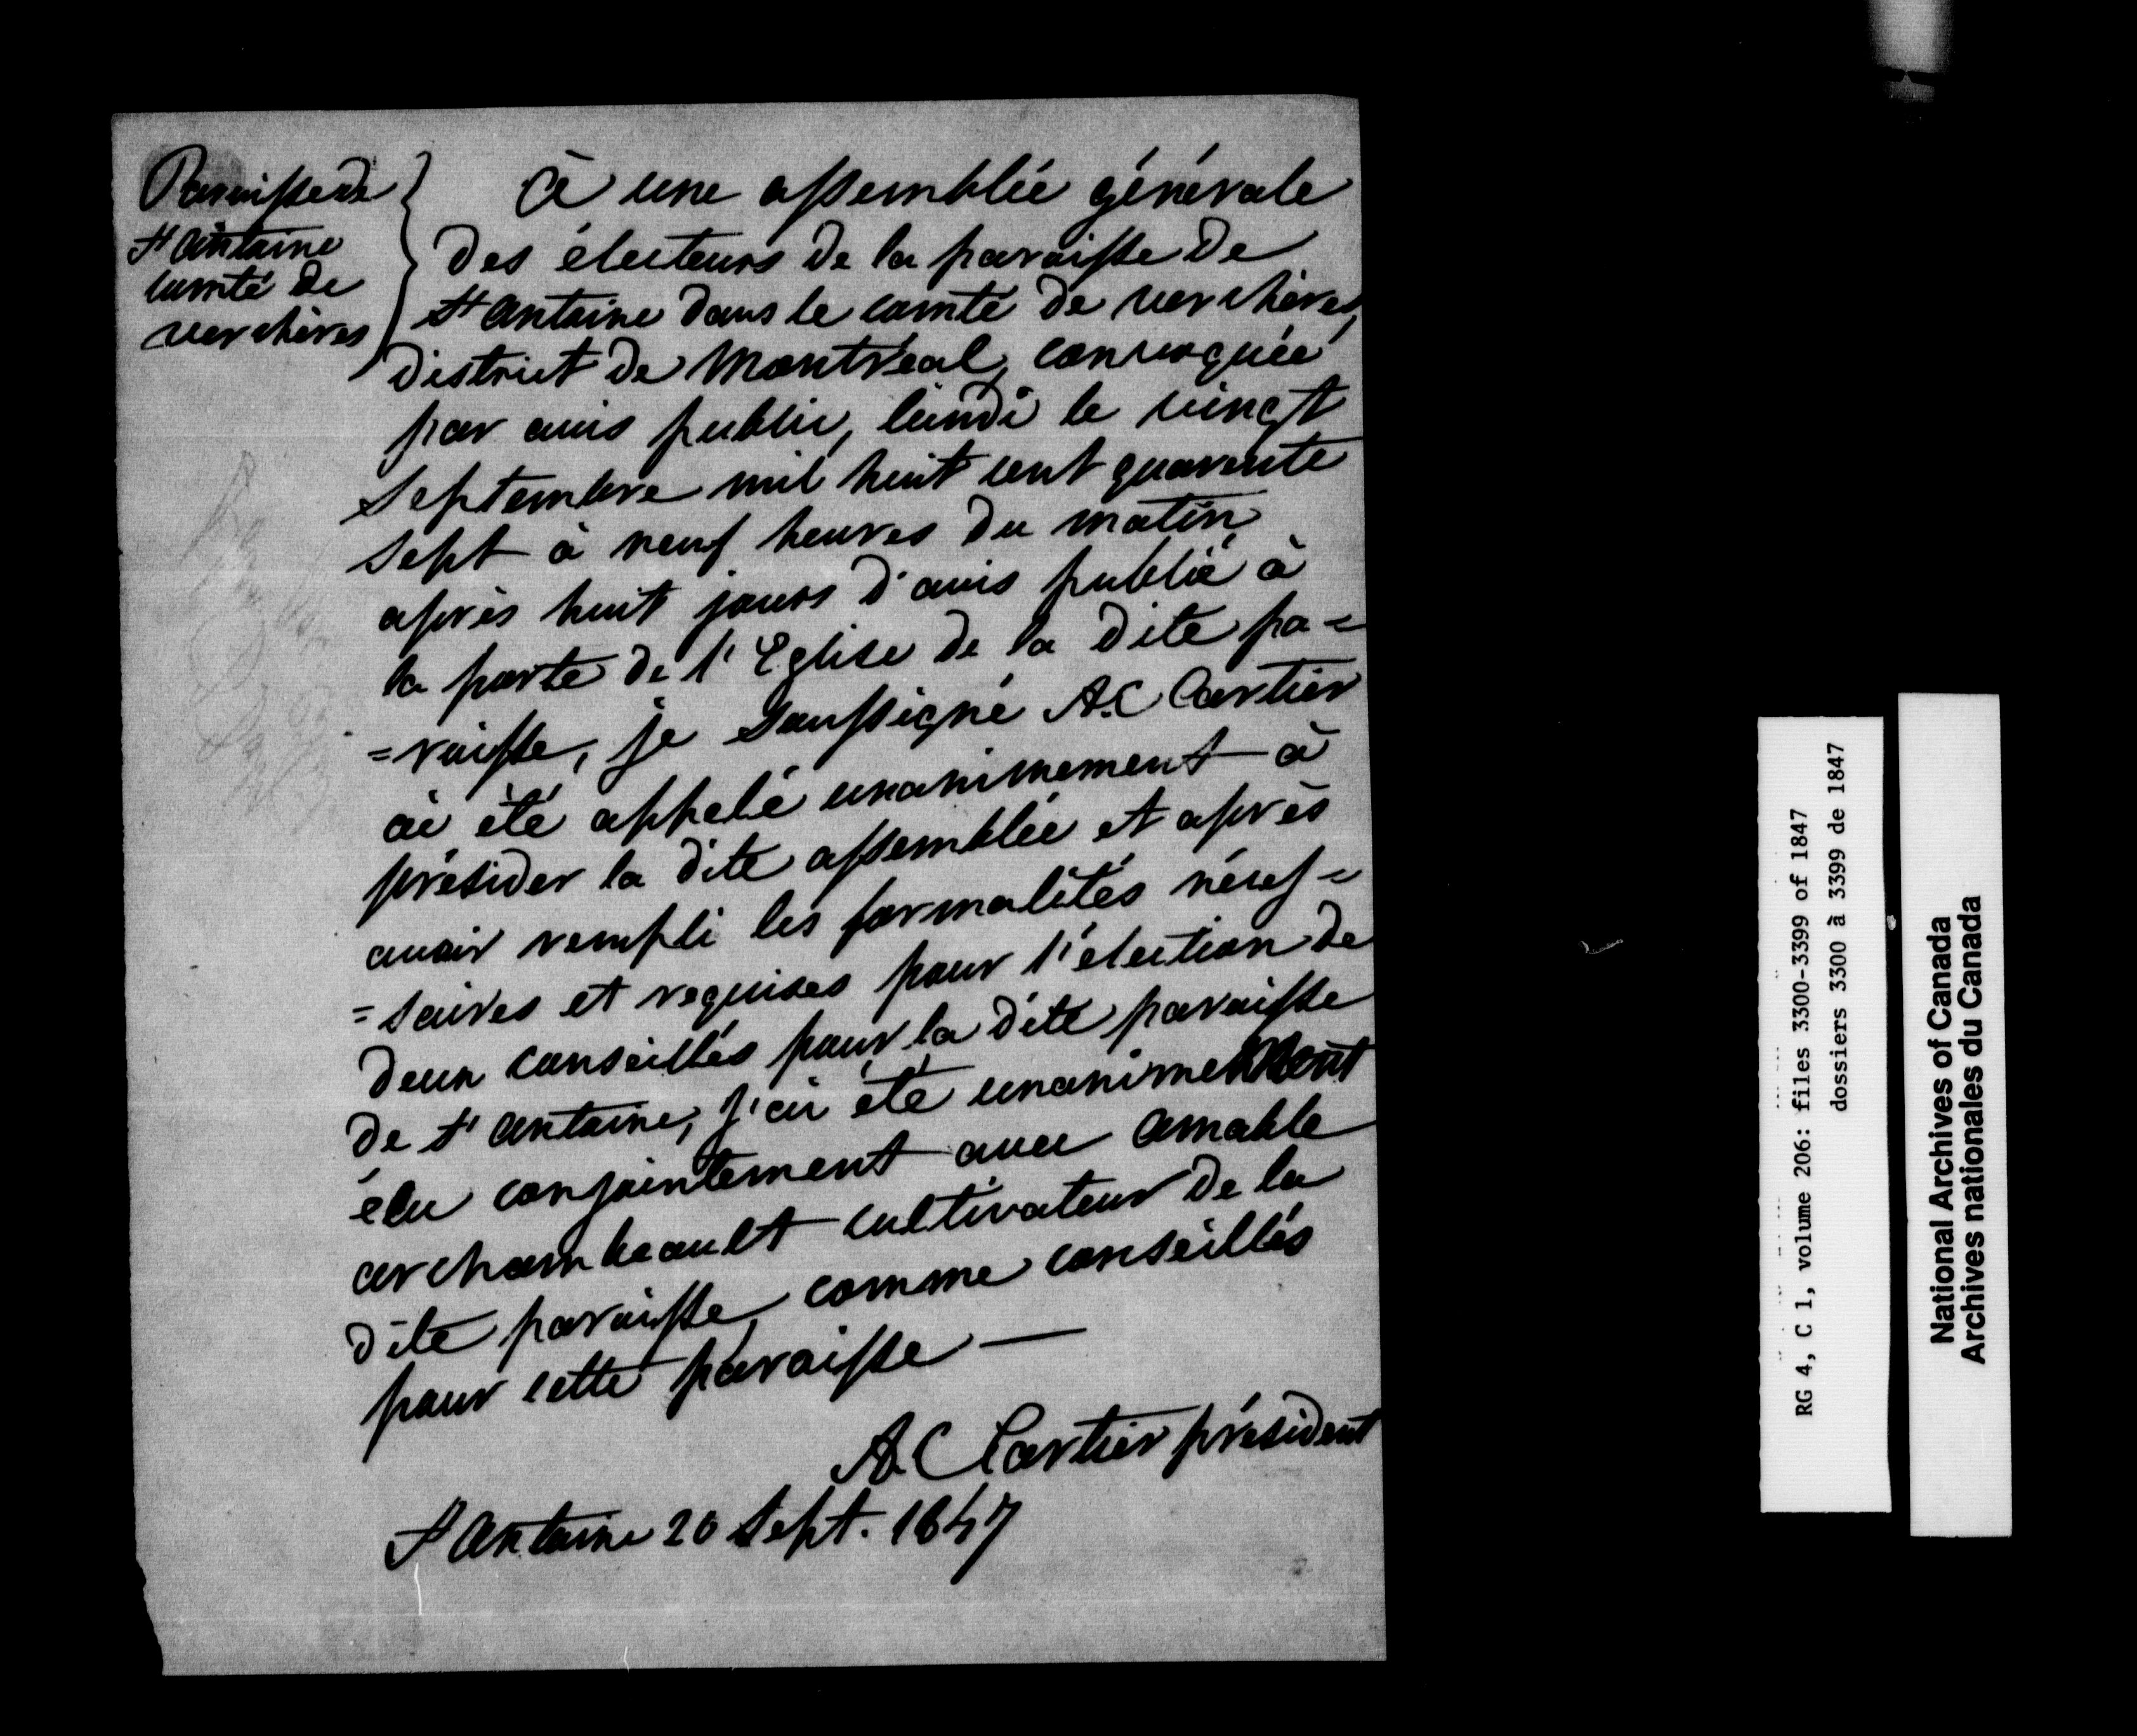 Paroisse de
St Antoine
comté de
verchères
À une assemblée générale
des électeurs de la paroisse de
St Antoine dans le comté de verchères,
district de Montréal, convoquée
par avis public, lundi le vingt
septembre mil huit cent quarante
sept à neuf heures du matin,
après huit jours d'avis publié à
la porte de l'Eglise de la dite pa=
=roisse, je soussigné A.C Cartier
ai été appelé unanimement à
présider la dite assemblée et après
avoir rempli les formalités néces=
=saires et requises pour l'élection de
deux conseillés pour la dite paroisse
de St Antoine, j'ai été unanimement
élu conjointement avec Amable
archambeault cultivateur de la
dite paroisse, comme conseillés
pour cette paroisse —
A. C Cartier président
St Antoine 20 Sept. 1847
RG 4, C 1, volume 206: files 3300-3399 of 1847
dossiers 3300 à 3399 de 1847
National Archives of Canada
Archives nationales du Canada